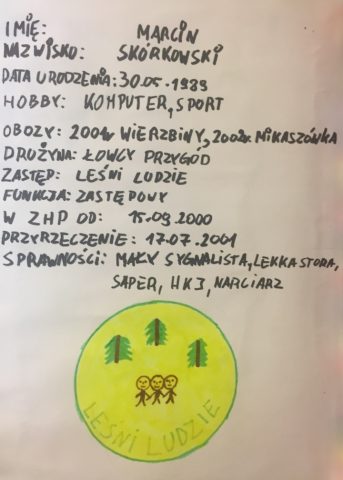 IMIĘ: MARCIN
NAZWISKO: SKÓRKOWSKI
DATA URODZENIA: 30.05.1989
HOBBY: KOMPUTER, SPORT
OBOZY: 2001w WIERZBINY, 2002w. MIKASZÓWKA
DRUŻYNA: ŁOWCY PRZYGÓD
ZASTĘP: LEŚNI LUDZIE
FUNKCJA: ZASTĘPOWY
W ZHP OD: 15.09.2000
PRZYRZECZENIE: 17.07.2001
SPRAWNOŚCI: MAŁY SYGNALISTA, LEKKASTORA,
SAPER, HKJ, NARCIARZ
LEŚNI LUDZIE